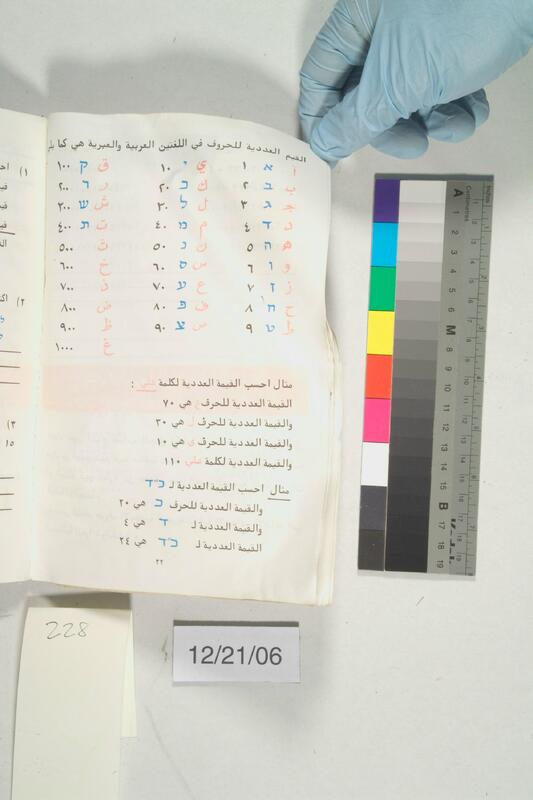 القيم العددية للحروف في اللغتين العربية والعبرية هي كما يلي
ا א ١ ي י ١٠ ق ק ١٠٠
ب ב ٢ ك כ ٢٠ ر ר ٢٠٠
ج ג ٣ ل ל ٣٠ ش ש ٣٠٠
د ד ٤ م מ ٤٠ ت ת ٤٠٠
ه ה ٥ ن נ ٥٠ ث ٥٠٠
و ו ٦ س ס ٦٠ خ ٦٠٠
ز ז ٧ ع ע ٧٠ ذ ٧٠٠
ح ח ٨ ف פ ٨٠ ض ٨٠٠
ط ט ٩ צ ٩٠ ظ ٩٠٠
غ ١٠٠٠
مثال احسب القيمة العددية لكلمة علي :
القيمة العددية للحرف ع هي ٧٠
والقيمة العددية للحرف ل هي ٣٠
والقيمة العددية للحرف ي هي ١٠
والقيمة العددية لكلمة علي ١١٠
مثال احسب القيمة العددية لـ כד
والقيمة العددية للحرف כ هي ٢٠
والقيمة العددية لـ ד هي ٤
القيمة العددية لـ כד هي ٢٤
٢٢
228
12/21/06
inches
Centimetres
A 1 2 3 4 5 6 M 8 9 10 11 12 13 14 15 B 17 18 19